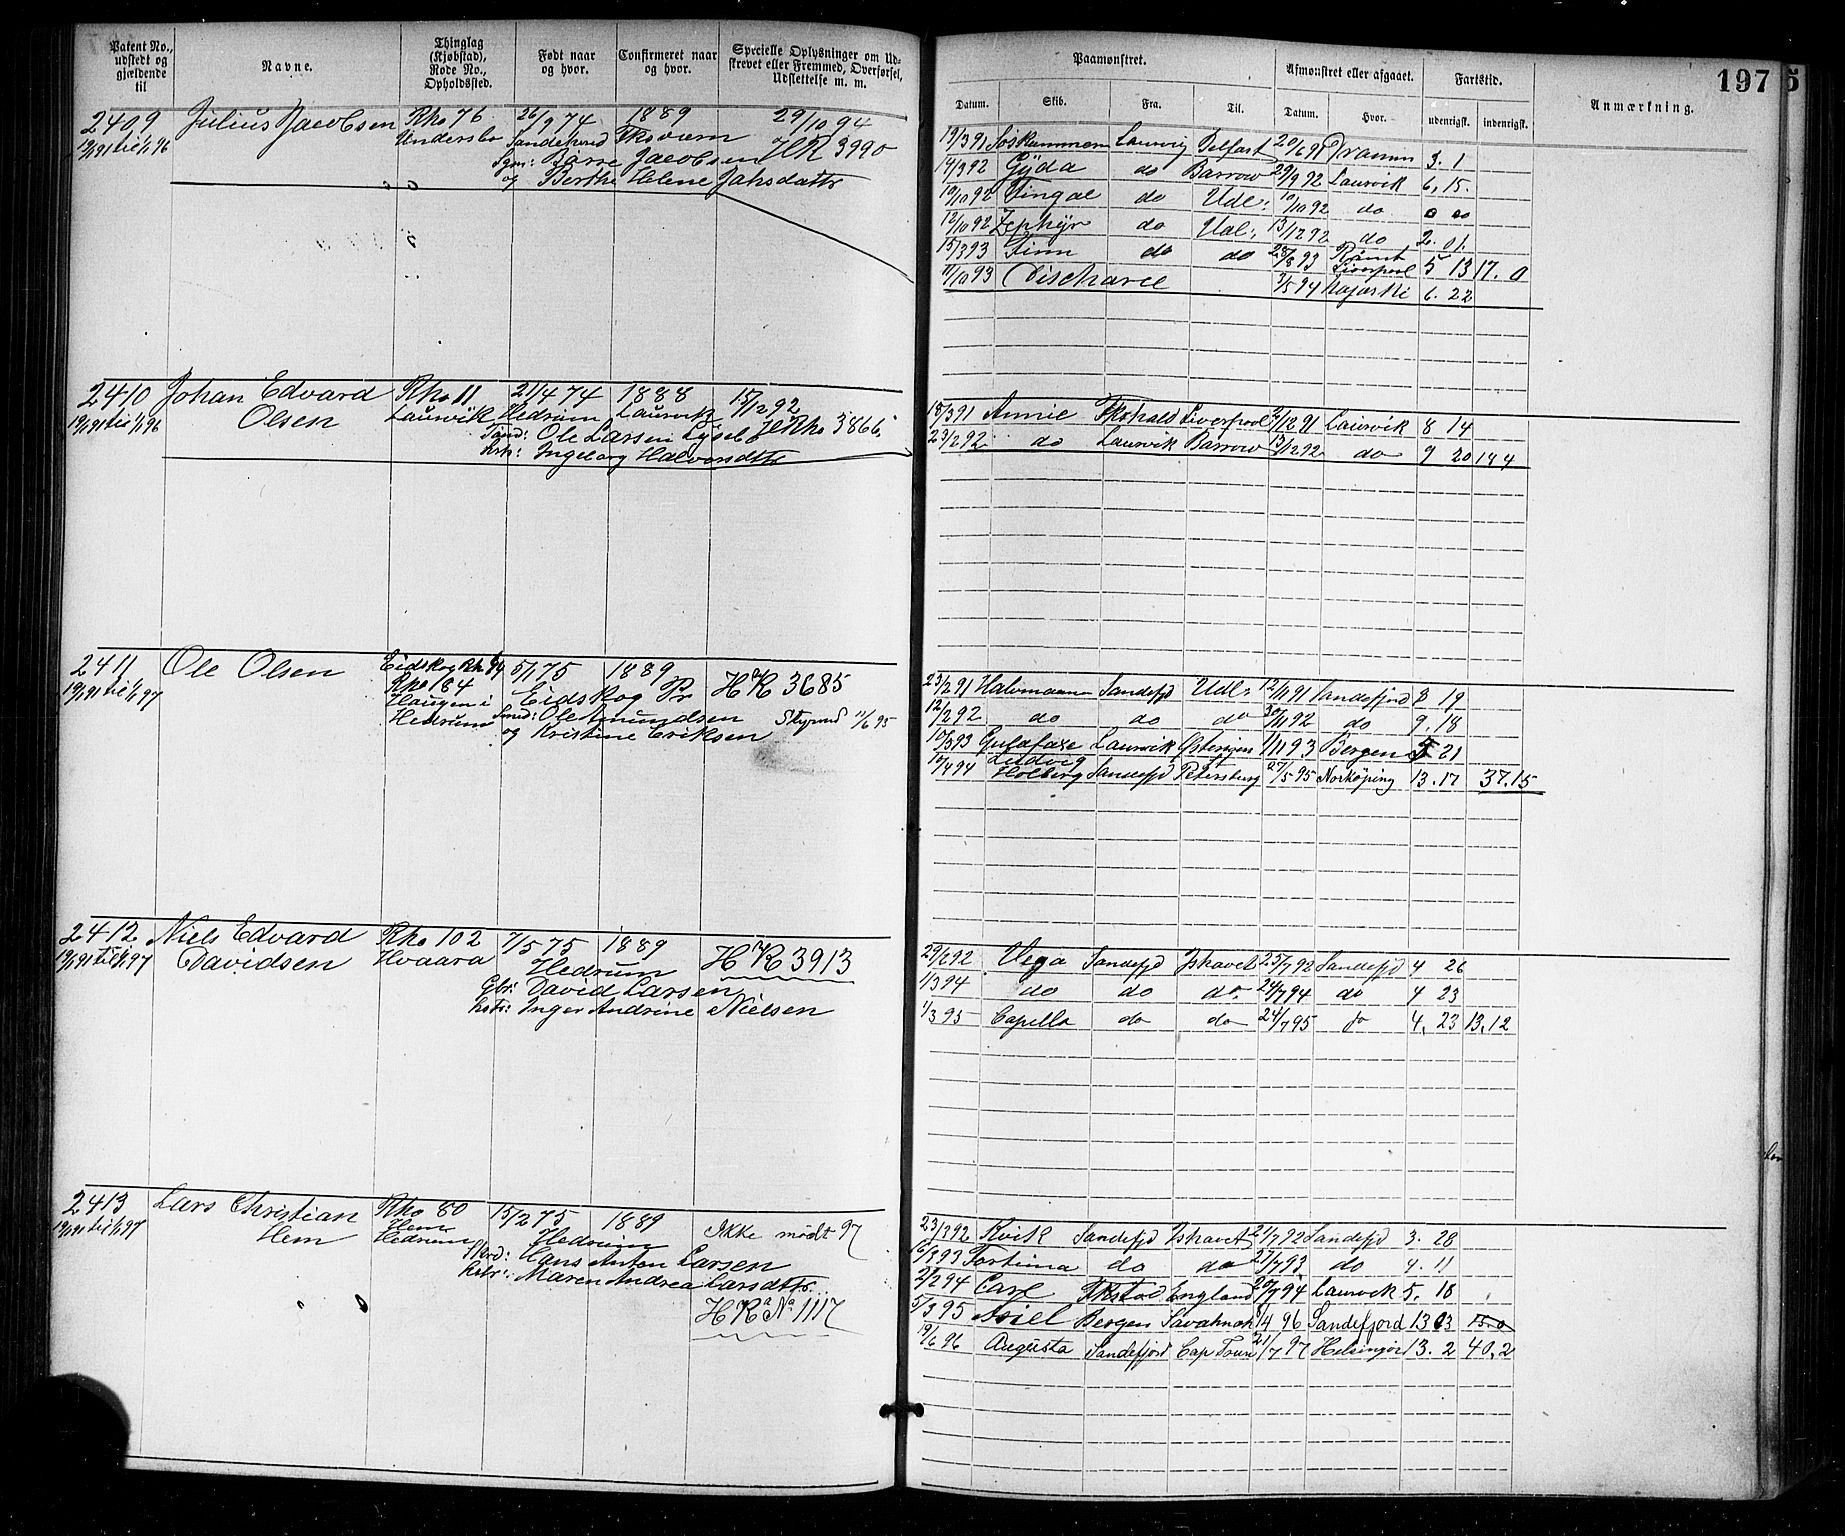 Patent No., udstedt og gjældende til
Navne.
Thinglag (Kjøbstad), Rode No., Opholdssted.
Født naar og hvor.
Confirmeret naar og hvor.
Specielle Oplysninger om Udskrevet eller Fremmed, Overførsel, Udslettelse m. m.
Paamønstret.
Afmønstret eller afgaaet.
Fartstid.
Anmærkning.
197
5
Datum.
Skib.
Fra.
Til.
Datum.
Hvor.
udenrigsk.
indenrigsk.
2409 Julius Jacobsen Rho 76 26/9 74 1889 29/10 94
19/1 91 til 1/1 96 Undersbo Sandeherred Tksværn HR 3990
Sgm: Børre Jacobsen
og Berthe Helene Jahsdattr
19/3 91 Laurvig Belfast 20/6 91 Dramm 3. 1
14/3 92 Gyda do Barrow 29/9 92 Laurvik 6, 15.
10/10 92 Fingal do Udl: 10/10 92 do 0 0
12/10 92 Zephyr do Udl: 13/12 92 do 2. 01.
15/3 93 Finn do do 28/8 93 Rømt Liverpool 5 13 17. 0
11/10 93 3/5 94 6. 22
2410 Johan Edvard Rho 11 21/4 74 1888 15/12 92
19/1 91 til 1/1 96 Olsen Laurvik Hedrum Laurvik HRho 3866
Tømd: Ole Larsen Lysebo
Krh: Ingeborg Halvorsdttr
18/3 91 Annie Liverpool 12 91 Laurvik 8 14
23/2 92 do Laurvik Barrow 13/12 92 do 9 20 18 4
2411 Ole Olsen Eidskog Rh 5/1 75 1889 HR 3685
19/1 91 til 1/1 97 Rho 184 Eidskog Pr
Haugen i Smd: Ole Amundsen Styrmd 11/6 95
Hedrum og Kristine Eriksen
23/2 91 Halvmaane Sandefjd Udl: 12/11 91 Sandefjord 8 19
12/2 92 do do do 30/11 92 do 9. 18
10/3 93 Gulafaxe Laurvik 1/11 93 Bergen 21
10/4 94 Ludvig Holberg Sandefjd Petersburg 27/5 95 Norköping 13. 17 37.15
2412 Niels Edvard Rho 102 7/5 75 1889 HR 3913
19/1 91 til 1/1 97 Davidsen Hvaara Hedrum
Gbr: David Larsen
hstr: Inger Andrine Nielsen
29/2 92 Vega Sandefjd Ishavet 25/7 92 Sandefjd 4 26
1/3 94 do do do. 24/7 94 do 4 23
1/3 95 Capella do do 24/7 95 do 4, 23 13,12
2413 Lars Christian Rho 80 15/2 75 1889 Ikke mødt 97
19/1 91 til 1/1 97 Hem Hem Hedrum Hedrum
Hans Anton Larsen
hstr: Maren Andrea Larsdttr
HR No 1117
23/3 92 Kvik Sandefjd Ishavet 21/7 92 Sandefjd 3. 28
16/3 93 Fortuna do do 27/7 93 do 4. 11
2/2 94 Carl England 20/7 94 Laurvik 5. 18
5/3 95 Bergen Savahnah 1/4 96 Sandefjord 13 03 15.0
19/6 96 Augusta Sandefjord 21/7 97 Helsingør 13. 2 40,2